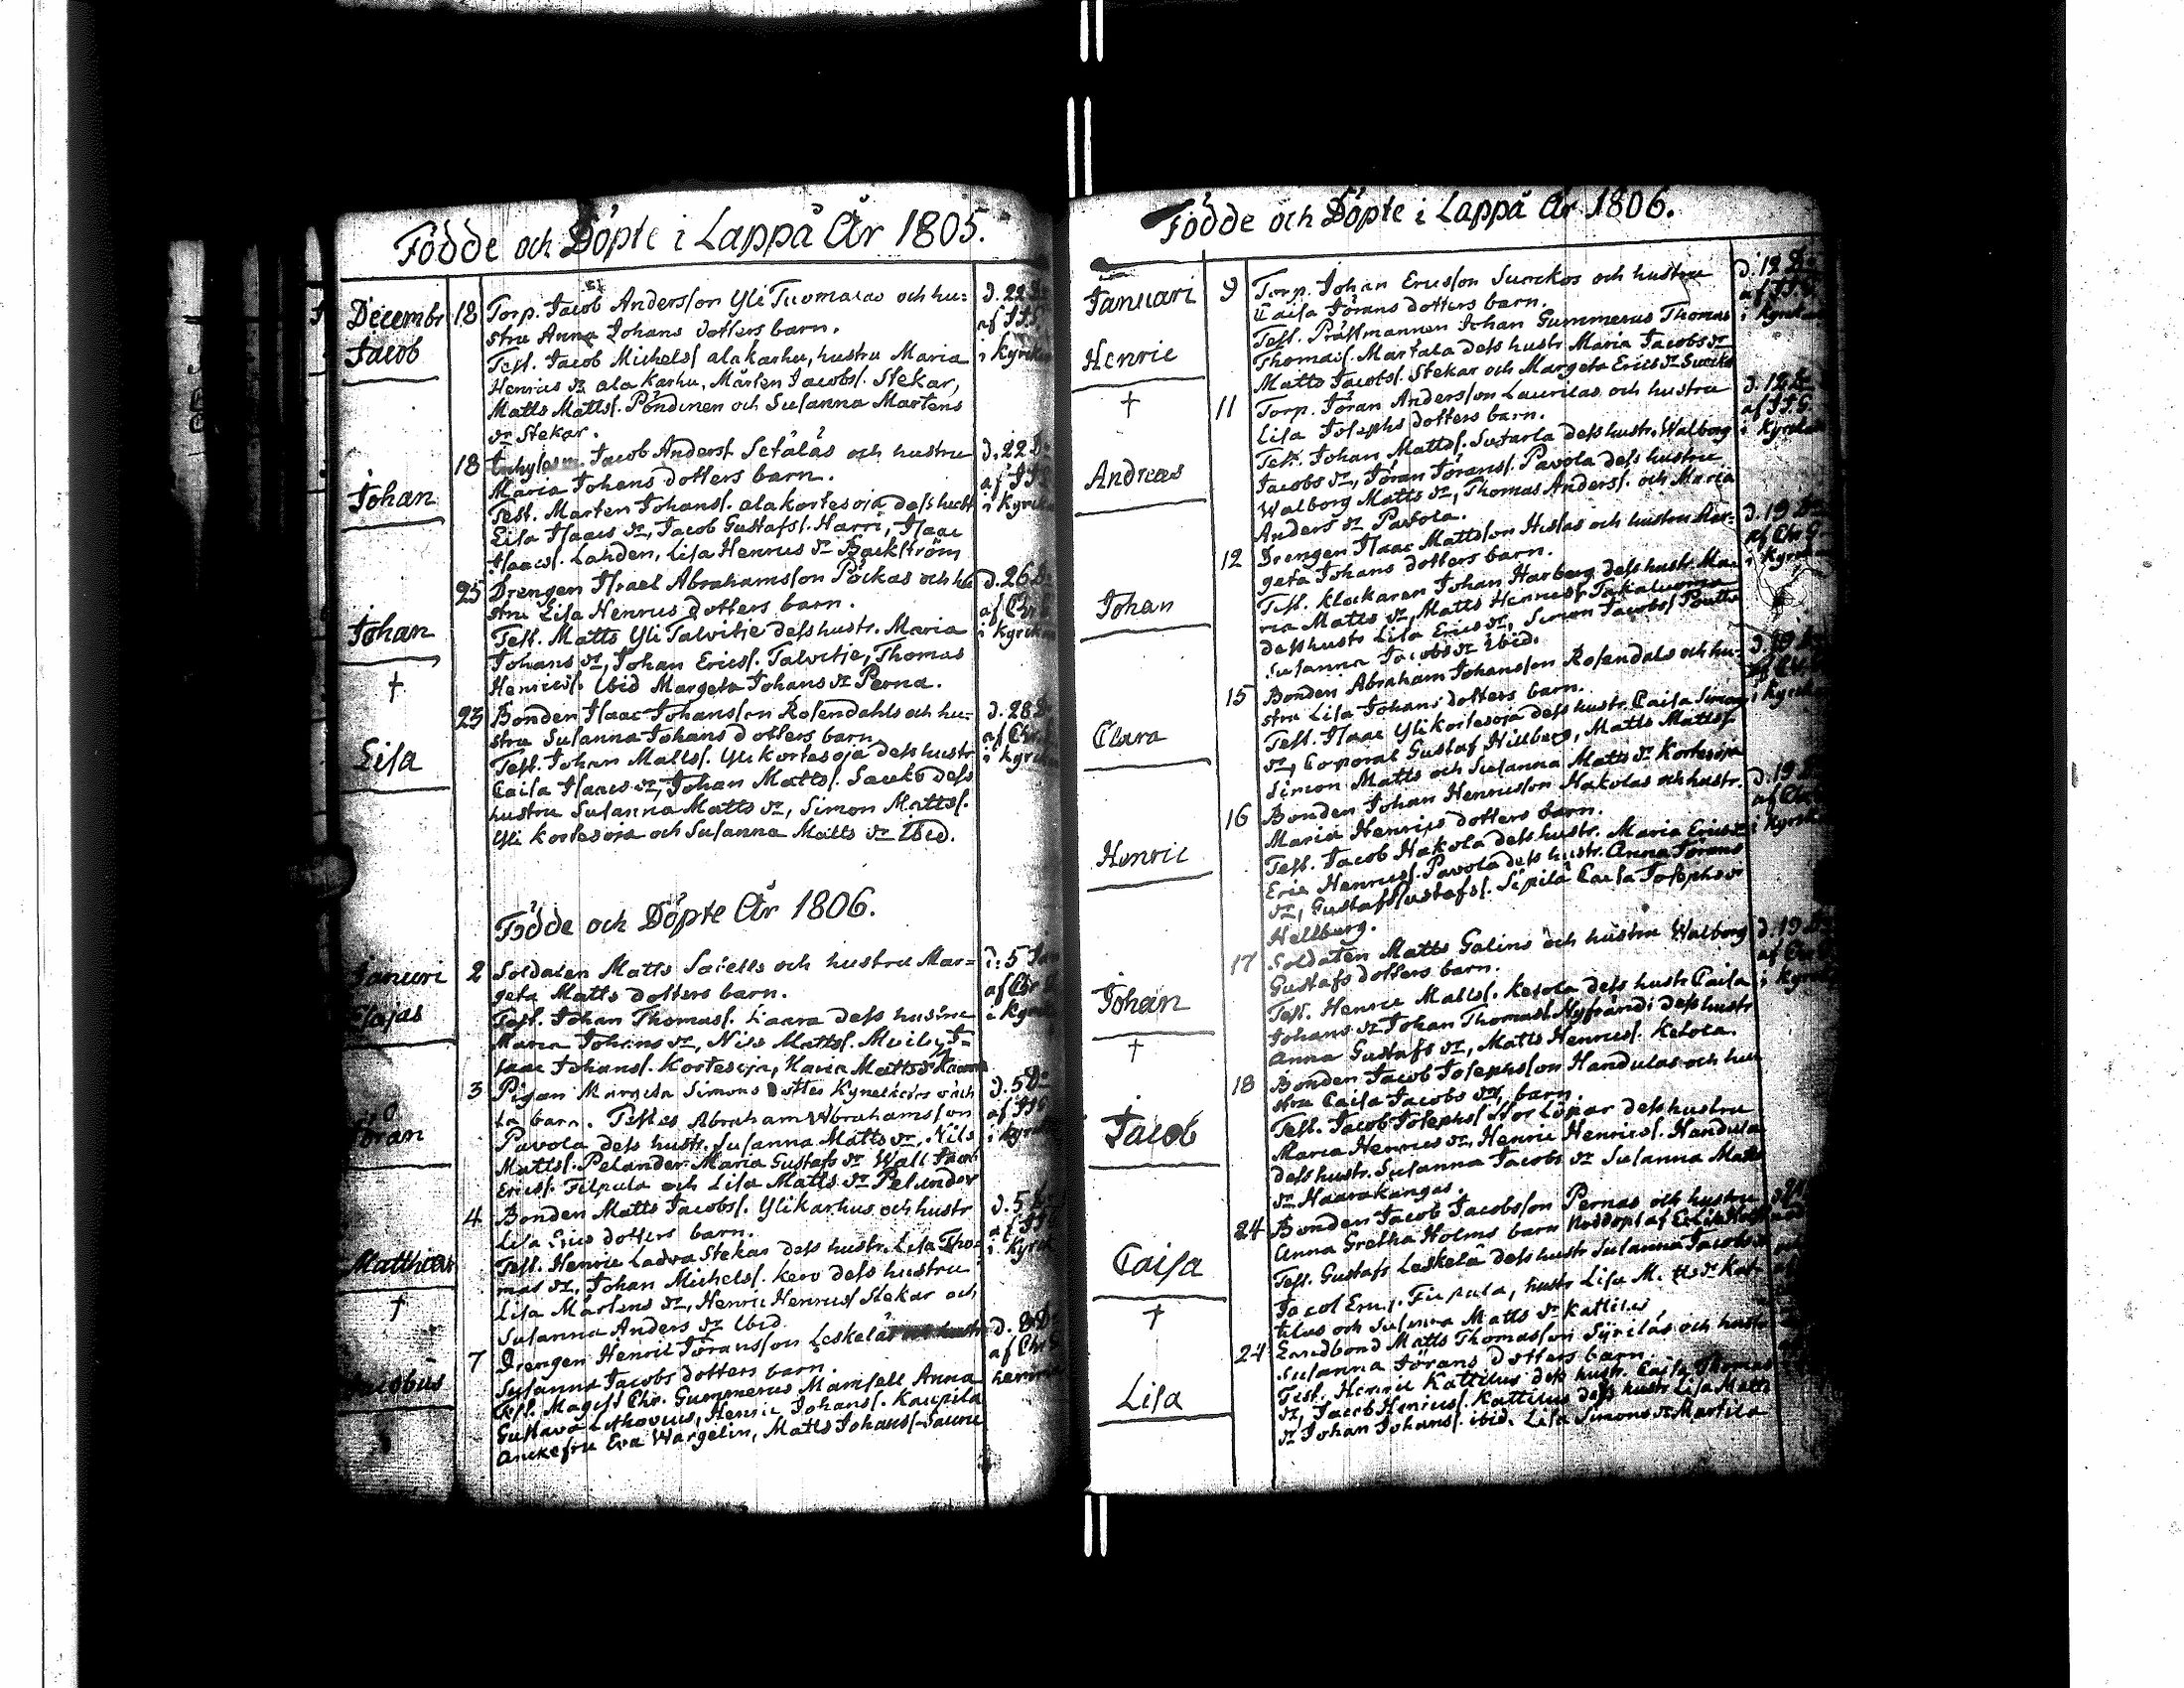 Födde och Döpte i Lappå År 1805.
Decembr 18 Torp. Jacob Andersson Yli Tuomalas och hu- d. 22 D:o
Jacob stru Anna Johans dotters barn. af J.J.G.
Test. Jacob Michelss. alakarhu, hustru Maria i Kyrkan
Henrics dr alakarhu, Mårten Jacobss. Stekar,
Matts Mattss. Pöndinen och Susanna Martens
dr Stekar.
Johan 18 Jacob Anderss Setäläs och hustru d. 22 D:o
Maria Johans dotters barn. af J.J.G.
Test. Marten Johanss. alakortesoja dess hustr i Kyrkan
Lisa Isaacs dr, Jacob Gustafss. Harri, Isaac
Isaacss. Lahden, Lisa Henrics dr Backström
Johan 25 Drengen Israel Abrahamsson Pöckas och hu d. 26 D:o
† stru Lisa Henrics dotters barn. af Chr. G.
Test. Matts Yli Talvitie dess hustr. Maria i Kyrkan
Johans dr, Johan Ericss. Talvitje, Thomas
Henricss. Ibid Margeta Johans dr Perna.
Lisa 23 Bonden Isaac Johansson Rosendahls och hu- d. 28 D:o
stru Susanna Johans dotters barn af Chr.
Test. Johan Mattss. Yli kortesoja dess hustr i Kyrkan
Caisa Isaacs dr, Johan Mattss. Sauko dess
hustru Susanna Matts dr, Simon Mattss.
Yli kortesoja och Susanna Matts dr Ibid.
Födde och Döpte År 1806.
Januari 2 Soldaten Matts och hustru Mar- d. 5 Jan
geta Matts dotters barn. af Chr
Test. Johan Thomass. Laara dess hustru i Kyrkan
Maria Johans dr, Nils Mattss. I-
saac Johanss. Kortesoja, Matts dr
Jöran 3 Pigan Margeta Simons dotter oäch d. 5 D:o
ta barn. Testes Abraham Abrahamsson af J.J.G.
Pavola dess hustr. Susanna Matts dr, Nils i Kyrkan
Mattss. Pelander Maria Gustafs dr Wall Jacob
Ericss. Filpula och Lisa Matts dr Pelander
Matthias 4 Bonden Matts Jacobss. Ylikarhus och hustr d. 5
† Lisa Erics dotters barn. af J.J.G.
Test. Henric Ladva Stekar dess hustr. Lisa Tho- i Kyrk
mas dr, Johan Michelss. Kero dess hustru
Lisa Martens dr, Henric Henricss Stekar och
Susanna Anders dr Ibid.
Jacobus 7 Drengen Henric Jöransson Leskeläs d. D:o
Susanna Jacobs dotters barn. af Chr
Test. Magist Chr. Gummerus Mamsell Anna hemma
Gustava Lithovius, Henric Johanss. Kaupila
Enkefru Eva Wargelin, Matts Johanss.
Födde och Döpte i Lappå År 1806.
Januari 9 Torp. Johan Ericsson Surckos och hustru d. 12 D:o
Henric Caisa Jörans dotters barn. af J.J.G.
† Test. Prästmannen Johan Gummerus Thomas i Kyrkan
Thomass. Martala dess hustr Maria Jacobs dr
Matts Jacobss. Stekar och Margeta Erics dr
Andreas 11 Torp. Jöran Andersson Laurilas och hustru d. 12 D:o
Lisa Josephs dotters barn. af J.J.G.
Test. Johan Mattss. dess hustr. Walborg i Kyrkan
Jacobs dr, Jöran Jöranss. Pavola dess hustru
Walborg Matts dr, Thomas Anderss. och Maria
Anders dr Pavola.
Johan 12 Drengen Isaac Mattsson och hustru Mar- d. 19 D:o
geta Johans dotters barn. af Chr G.
Test. Klockaren Johan Harberg dess hustr. Ma- i Kyrkan
ria Matts dr, Matts Henricss Takaluoma
dess hustr Lisa Erics dr, Simon Jacobss Poutto
Susanna Jacobs dr Ibid.
Clara 15 Bonden Abraham Johansson Rosendals och hu- d. 19
stru Lisa Johans dotters barn.
Test. Isaac Ylikortesoja dess hustr. Caisa Simons i Kyrkan
dr, Corporal Gustaf Hillberg, Matts Mattss.
Simon Matts och Susanna Matts dr Kortesoja
Henric 16 Bonden Johan Henricsson Hakolas och hustr. d. 19 D:o
Maria Henrics dotters barn. af Chr
Test. Jacob Hakola dess hustr. Maria Erics dr i Kyrkan
Eric Henricss. Pavola dess hustr. Anna Jörans
dr, Gustaf Gustafss. Sipilä Caisa Josephs dr
Hellberg.
Johan 17 Soldaten Matts Galins och hustru Walborg d. 19 D:o
† Gustafs dotters barn. af Chr
Test. Henric Mattss. Ketola dess hustr Caisa i Kyrkan
Johans dr Johan Thomass. Nyfrändi dess hustr
Anna Gustafs dr, Matts Henricss. Ketola.
Jacob 18 Bonden Jacob Josephsson Handulas och hu-
stru Caisa Jacobs dr, barn.
Test. Jacob Josephss Stor Lopar dess hustru
Maria Henrics dr, Henric Henricss. Handula
dess hustr. Susanna Jacobs dr Susanna Matts
dr Haarakangas.
Caisa 24 Bonden Jacob Jacobsson Pernas och hustru
† Anna Gretha Holms barn Nöddöpt af
Test. Gustafs Leskelä dess hustr Susanna Jacobs dr
Jacob Erics. Filpula, hustr Lisa Matts dr Kat-
tilus och Susanna Matts dr Kattilus
Lisa 24 Landbond Matts Thomasson Syriläs och hustr
Susanna Jörans dotters barn
Test. Henric Kattilus dess hustr. Caisa Thomas
dr, Jacob Henricss. Kattilus dess hustr Lisa Matts
dr Johan Johanss. ibid. Lisa Simons dr Martila